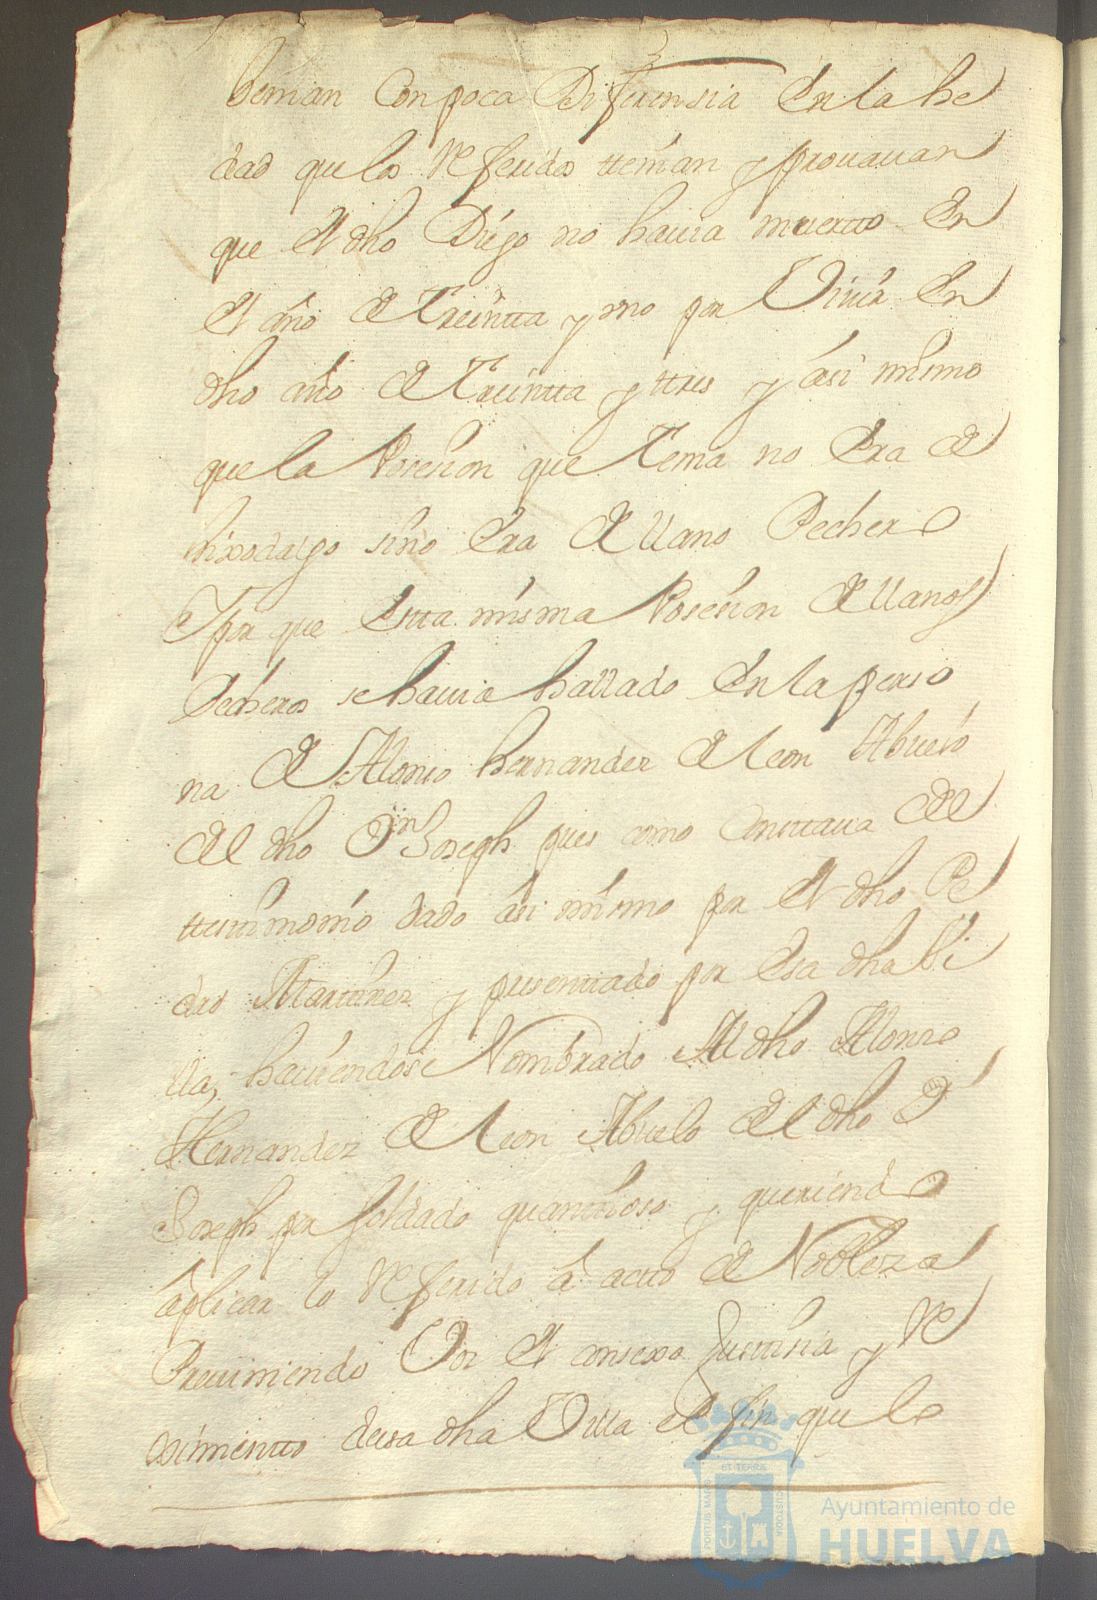 benian Con poca Diferensia En la he
dad que los Referidos ttenian y prouauan
que El dho Diego no hauia muertto En
El año de Treintta y uno por Viuir En
dho año de Treintta y ttres y asi mismo
que la Posesion que Tenia no Era de
hixodalgo sino Era de llano Pechero
Y por que Estta misma Posesion de llanos
Pecheros se hauia hallado En la perso
na de Alonso hernandez de leon Abuelo
del dho Dn Joseph pues como Consttaua del
ttestimonio dado asi mismo por El dho Pe
dro Martinez y presenttado por Esa dha Vi
lla, hauiendose Nombrado Al dho Alonso
Hernandez de leon Abuelo del dho Dn
Joseph por soldado quantioso y queriendo
aplicar lo Referido a actto de Nobleza
Preuiniendo Por El consexo Justtisia y Re
ximientto de esa dha Villa el fin que le
PORTUS MARIS ET TERRAE CUSTODIA
Ayuntamiento de
HUELVA